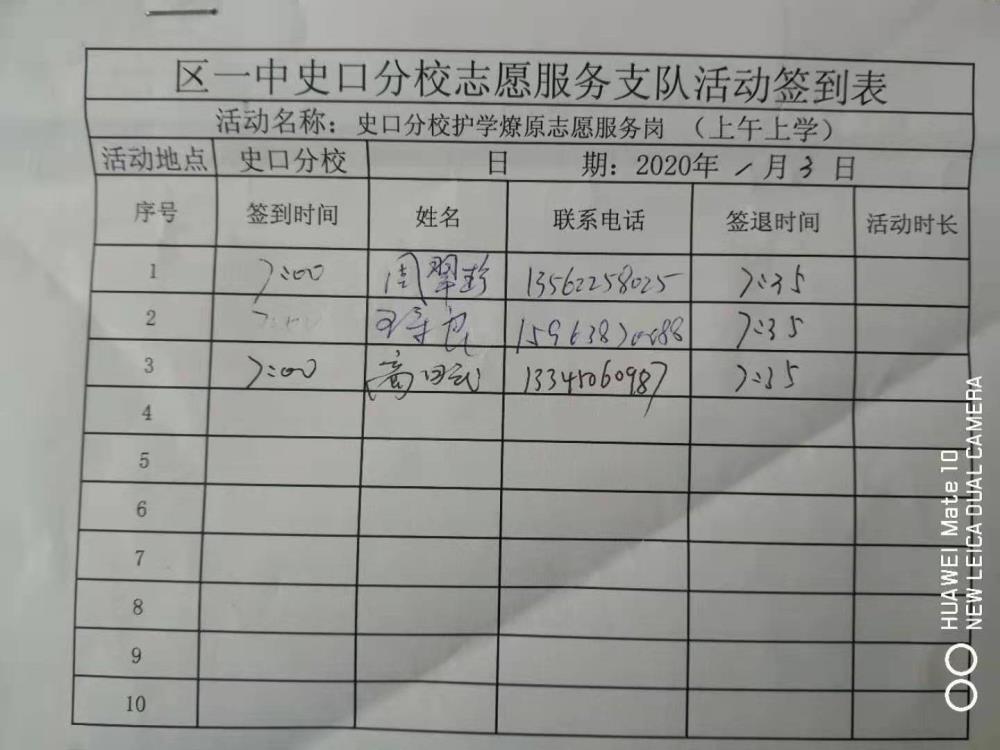 区一中史口分校志愿服务支队活动签到表
活动名称：史口分校护学燎原志愿服务岗 （上午上学）
活动地点 史口分校 日 期：2020年 1 月 3 日
序号 签到时间 姓名 联系电话 签退时间 活动时长
1 7:00 周翠珍 13562258025 7:35
2 7:00 7:35
3 7:00 高 13345060987 7:35
4
5
6
7
8
9
10
HUAWEI Mate 10
NEW LEICA DUAL CAMERA